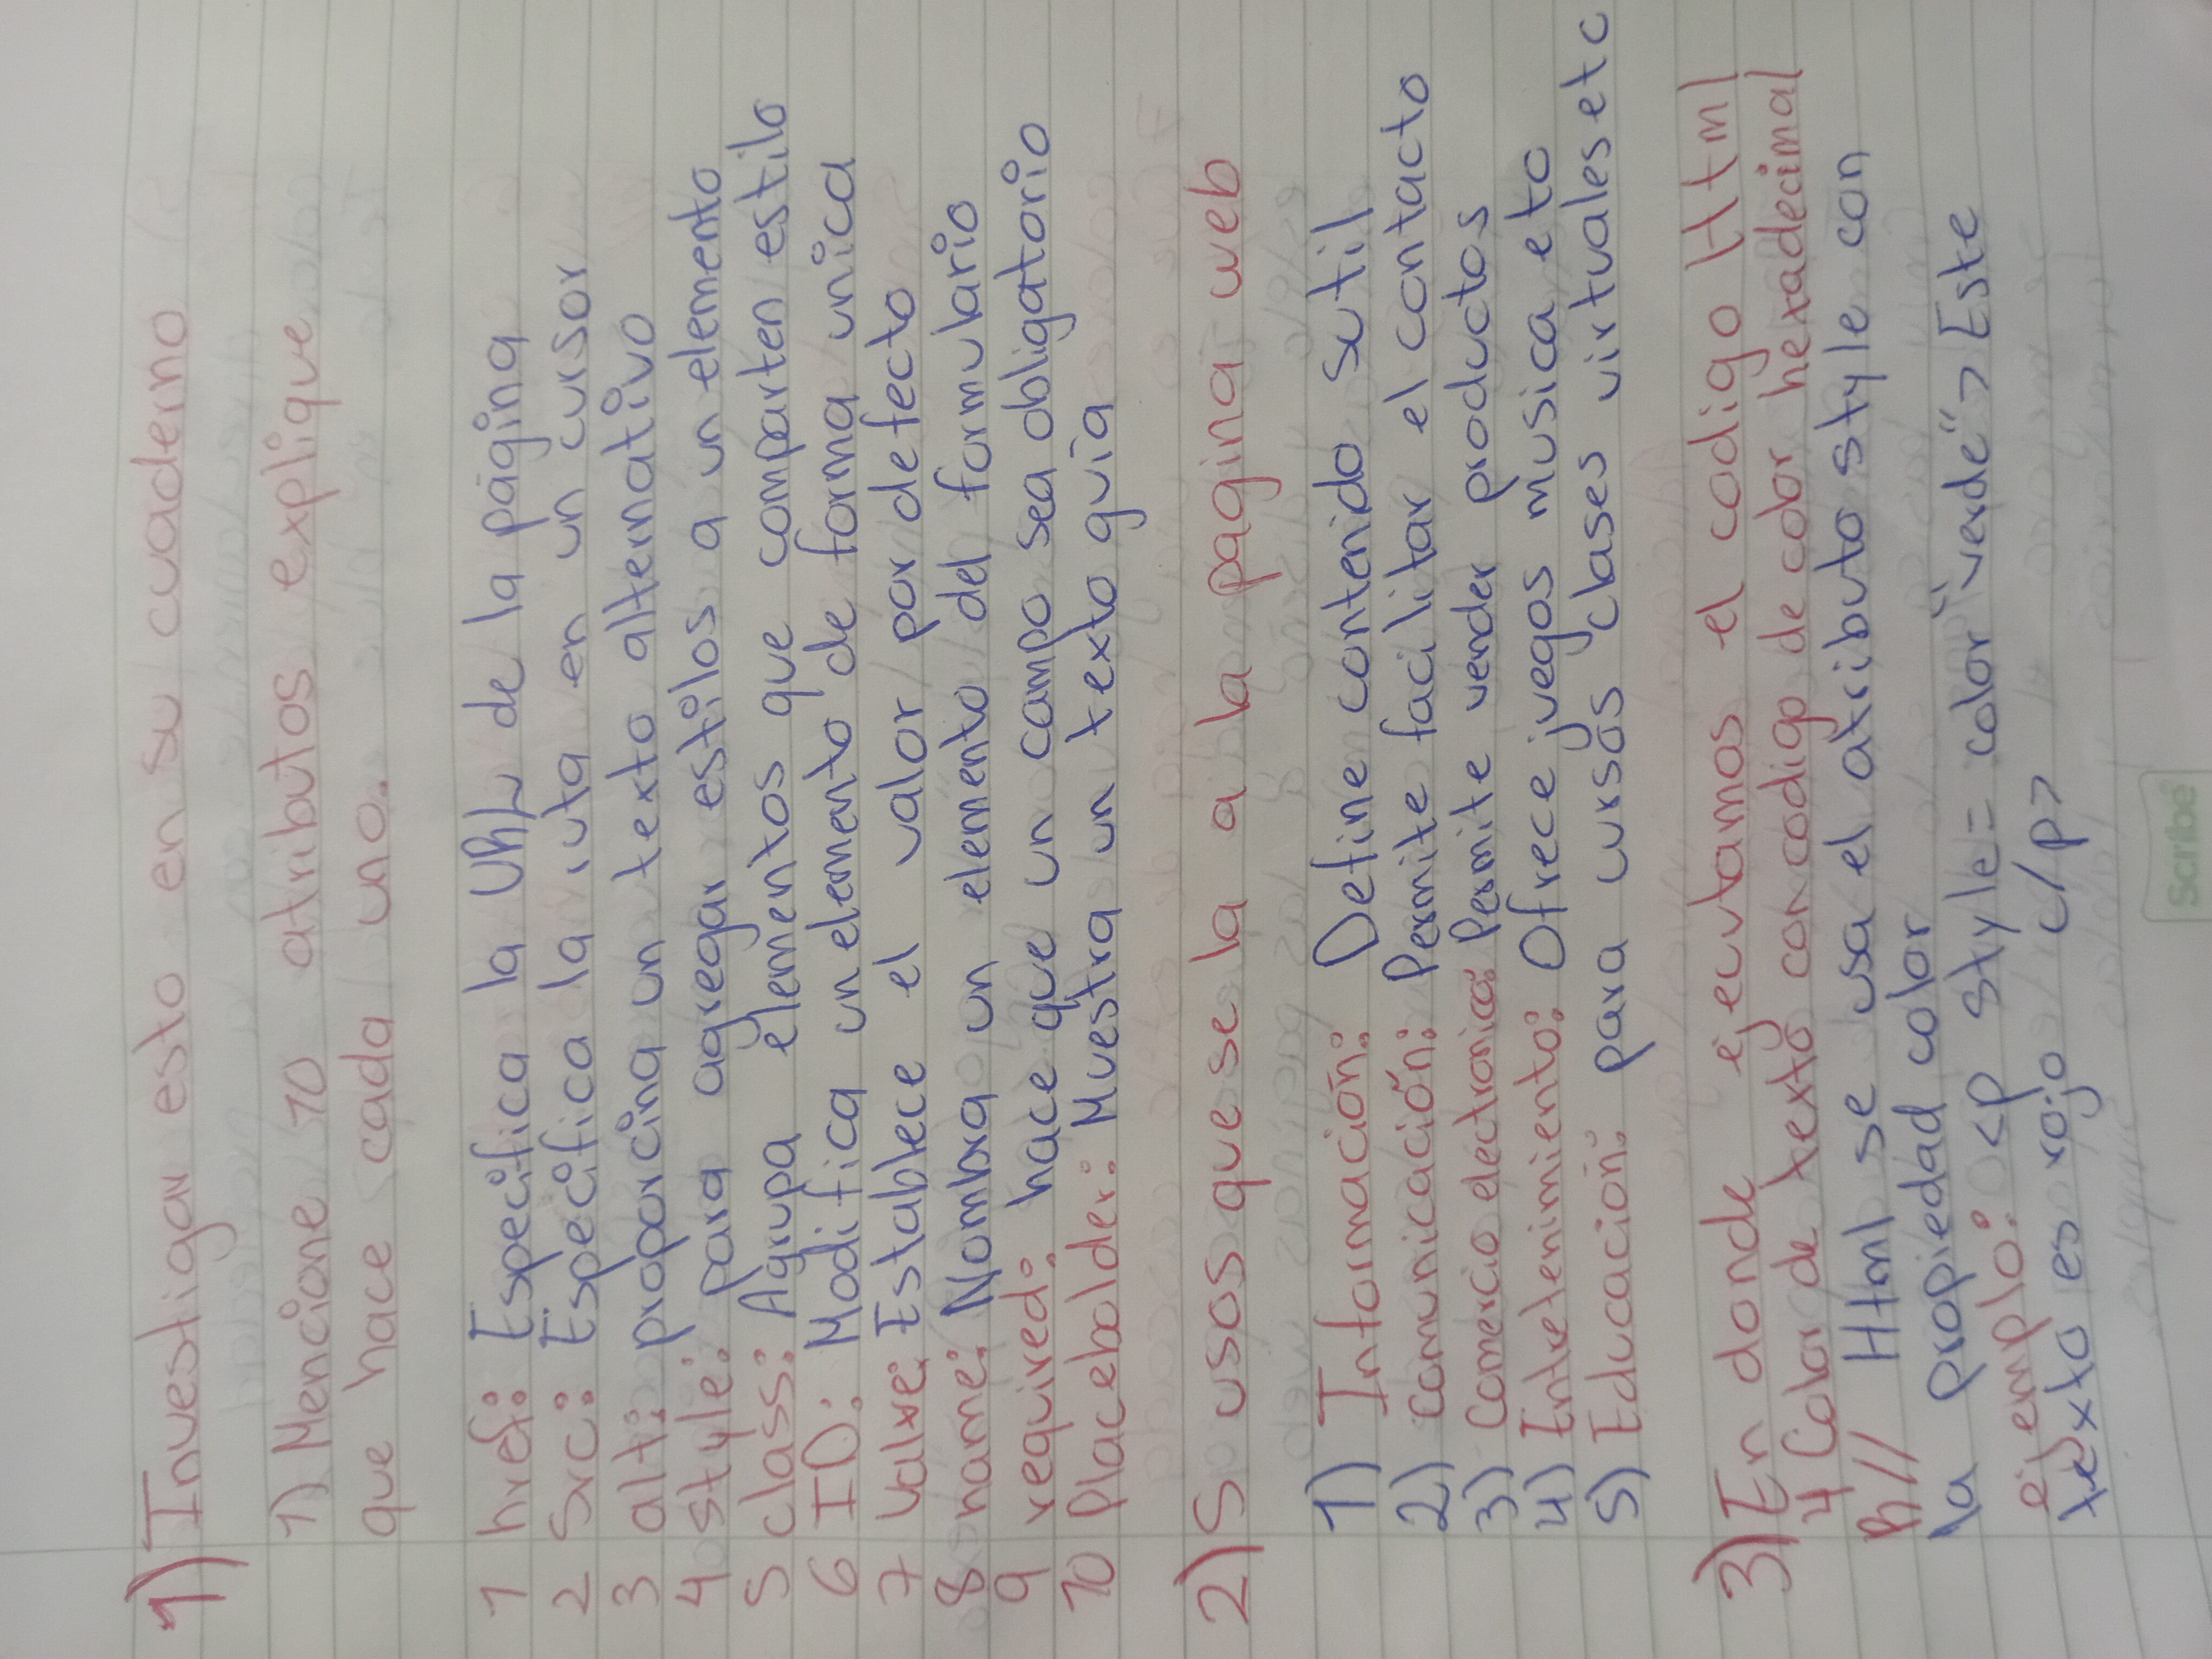 1) Investigar esto en su cuaderno
1) Mencione 10 atributos explique
que hace cada uno.
1 href: Especifica la URL de la página
2 Src: Especifica la ruta en un cursor
3 alt: proporcina un texto alternativo
4 style: para agregar estilos a un elemento
5 class: Agrupa elementos que comparten estilo
6 ID: Modifica un elemento de forma unica
7 Value: Establece el valor por defecto
8 name: Nombra un elemento del formulario
9 required: hace que un campo sea obligatorio
10 placebolder: Muestra un texto guía
2) 5 usos que se la a la pagina web
1) Información: Define contenido sutil
2) comunicación: Permite facilitar el contacto
3) Comercio electronico: Permite vender productos
4) Entretenimiento: Ofrece juegos musica etc
5) Educación: para cursos clases virtuales etc
3) En donde ejecutamos el codigo Html
4 Color de texto con codigo de color hexadecimal
R// Html se usa el atributo style con
la propiedad color
ejemplo: <p style= color "verde"> Este
texto es rojo </p>
Scribe